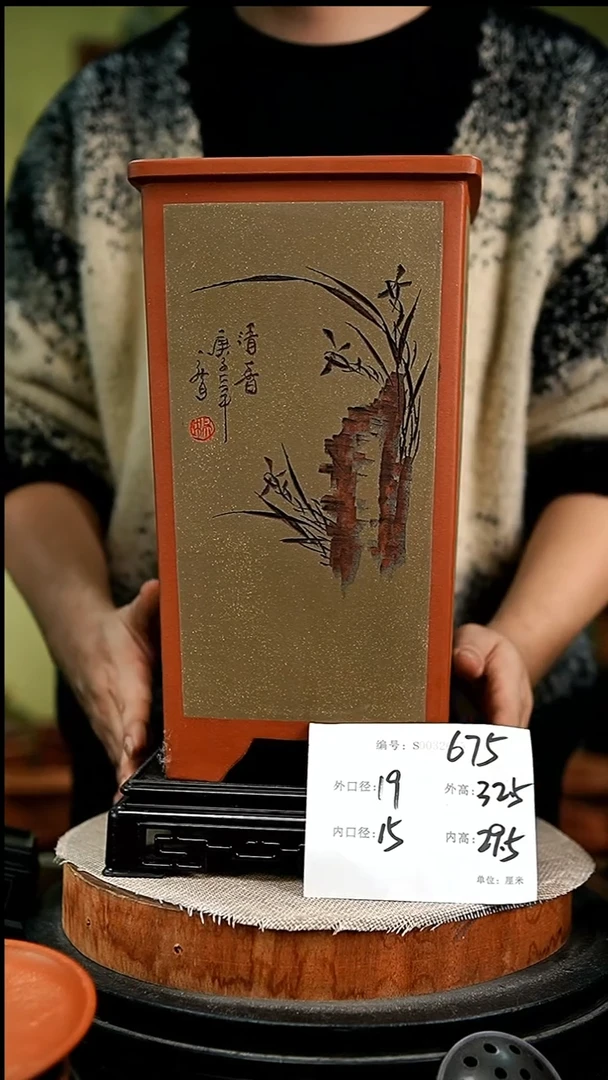 清香
庚子年
编号: S 675
外口径: 19
外高: 32.5
内口径: 15
内高: 29.5
单位: 厘米